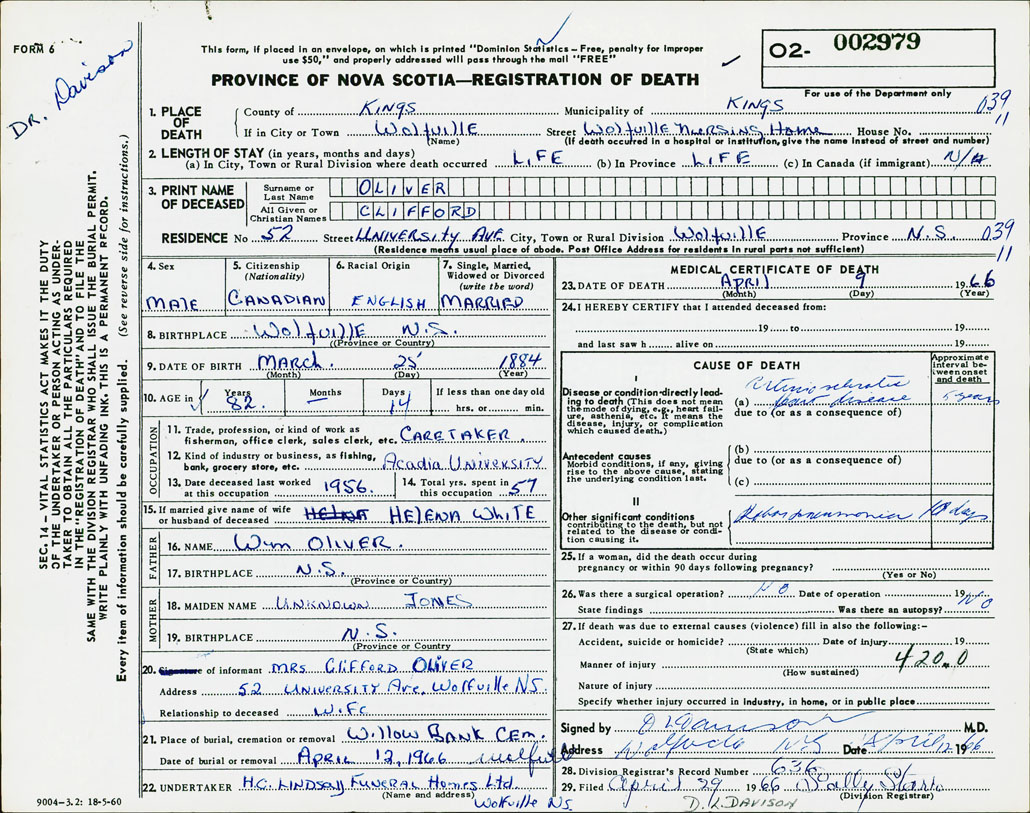 FORM 6
DR. Davison
This form, if placed in an envelope, on which is printed "Dominion Statistics – Free, penalty for improper
use $50," and properly addressed will pass through the mail "FREE"
PROVINCE OF NOVA SCOTIA—REGISTRATION OF DEATH
O2- 002979
For use of the Department only
039
11
1. PLACE OF DEATH
County of KINGS Municipality of KINGS
If in City or Town Wolfville Street Wolfville Nursing Home House No.
(Name) (If death occurred in a hospital or institution, give the name instead of street and number)
2. LENGTH OF STAY (in years, months and days)
(a) In City, Town or Rural Division where death occurred LIFE (b) In Province LIFE (c) In Canada (if immigrant) N/A
3. PRINT NAME OF DECEASED
Surname or Last Name OLIVER
All Given or Christian Names CLIFFORD
RESIDENCE No 52 Street UNIVERSITY AVE. City, Town or Rural Division Wolfville Province N.S. 039
11
(Residence means usual place of abode. Post Office Address for residents in rural parts not sufficient)
4. Sex MALE
5. Citizenship (Nationality) CANADIAN
6. Racial Origin ENGLISH
7. Single, Married, Widowed or Divorced (write the word) MARRIED
8. BIRTHPLACE Wolfville N.S.
(Province or Country)
9. DATE OF BIRTH March 25 1884
(Month) (Day) (Year)
10. AGE in Years 82 Months — Days 14 If less than one day old
hrs. or min.
OCCUPATION
11. Trade, profession, or kind of work as
fisherman, office clerk, sales clerk, etc. CARETAKER.
12. Kind of industry or business, as fishing,
bank, grocery store, etc. Acadia University
13. Date deceased last worked at this occupation 1956.
14. Total yrs. spent in this occupation 57
15. If married give name of wife
or husband of deceased HELENA WHITE
FATHER
16. NAME Wm OLIVER.
17. BIRTHPLACE N.S.
(Province or Country)
MOTHER
18. MAIDEN NAME UNKNOWN JONES
19. BIRTHPLACE N.S.
(Province or Country
20. Signature of informant MRS Clifford OLIVER
Address 52 UNIVERSITY Ave. Wolfville NS.
Relationship to deceased WIFE
21. Place of burial, cremation or removal Willow BANK CEM.
Date of burial or removal APRIL 12, 1966 Wolfville
22. UNDERTAKER H.C. LINDSAY FUNERAL HOMES Ltd.
(Name and address) Wolfville NS.
9004—3.2: 18-5-60
MEDICAL CERTIFICATE OF DEATH
23. DATE OF DEATH April 9 1966
(Month) (Day) (Year)
24. I HEREBY CERTIFY that I attended deceased from:
19 to 19
and last saw h alive on 19
CAUSE OF DEATH
Approximate interval between onset and death
I
Disease or condition directly leading to death (This does not mean
the mode of dying, e.g., heart failure, asthenia, etc. It means the
disease, injury, or complication
which caused death.)
(a) Arteriosclerotic heart disease 5 years
due to (or as a consequence of)
Antecedent causes
Morbid conditions, if any, giving
rise to the above cause, stating
the underlying condition last.
(b)
due to (or as a consequence of)
(c)
II
Other significant conditions
contributing to the death, but not
related to the disease or condition causing it.
Lobar pneumonia days
25. If a woman, did the death occur during
pregnancy or within 90 days following pregnancy?
(Yes or No)
26. Was there a surgical operation? NO Date of operation 19
State findings Was there an autopsy? NO
27. If death was due to external causes (violence) fill in also the following:-
Accident, suicide or homicide? Date of injury 19
(State which)
Manner of injury 420.0
(How sustained)
Nature of injury
Specify whether injury occurred in industry, in home, or in public place
Signed by D L Davison M.D.
Address Wolfville NS Date April 12 1966
28. Division Registrar's Record Number 636
29. Filed April 29 1966 Sally Starr
(Division Registrar)
D. L. DAVISON
SEC. 14— VITAL STATISTICS ACT MAKES IT THE DUTY
OF THE UNDERTAKER OR PERSON ACTING AS UNDERTAKER TO OBTAIN ALL THE PARTICULARS REQUIRED
IN THE "REGISTRATION OF DEATH" AND TO FILE THE
SAME WITH THE DIVISION REGISTRAR WHO SHALL ISSUE THE BURIAL PERMIT.
WRITE PLAINLY WITH UNFADING INK. THIS IS A PERMANENT RECORD.
Every item of information should be carefully supplied. (See reverse side for instructions.)